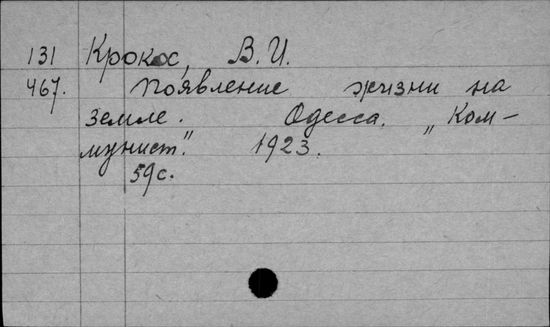 131 Крокос, В. И.
467. Появление жизни на
земле. Одесса. „Ком-
мунист". 1923.
59 с.